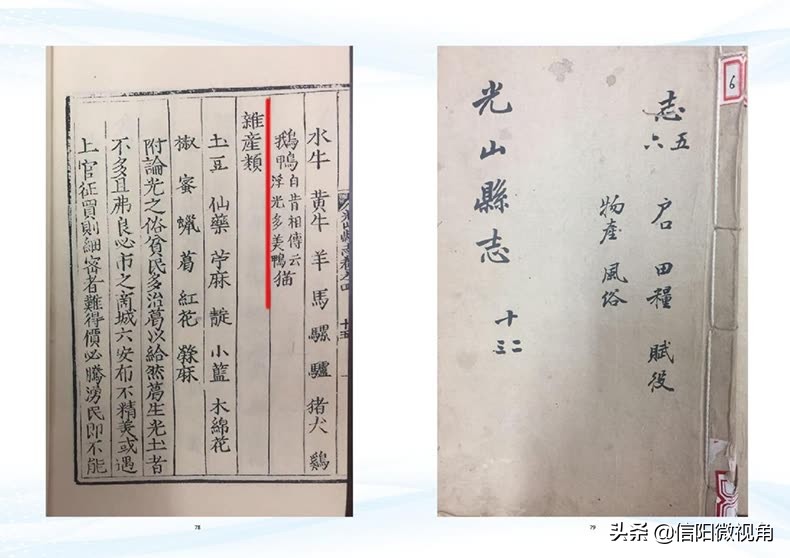 水牛 黃牛 羊 馬 騾 驢 猪 犬 鷄
鵝鴨 自昔相傳云浮光多美鴨 猫
雜產類
土豆 仙藥 苧麻 靛 小藍 木綿花
椒 蜜 蠟 葛 紅花 檾麻
附論光之俗貧民多治葛以給然葛生光土者
不多且弗良必市之商城六安布不精美或遇
上官征買則細密者難得價必騰湧民即不能
78
6
志 五 六 户口 田糧 賦役
物產 風俗
光山縣志 十二 三
79
头条 @信阳微视角